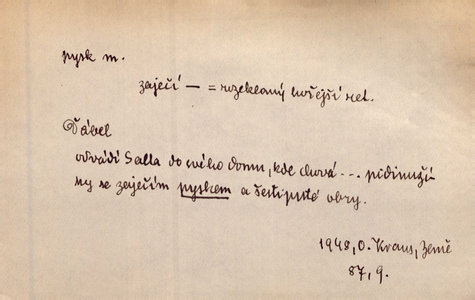 pysk m.
zaječí — = rozeklaný hořejší ret.
Ďábel
odvádí Salla do svého domu, kde chová ... pidimuží-
ky se zaječím pyskem a šestiprsté obry.
1948, O. Kraus, Země
87, 9.